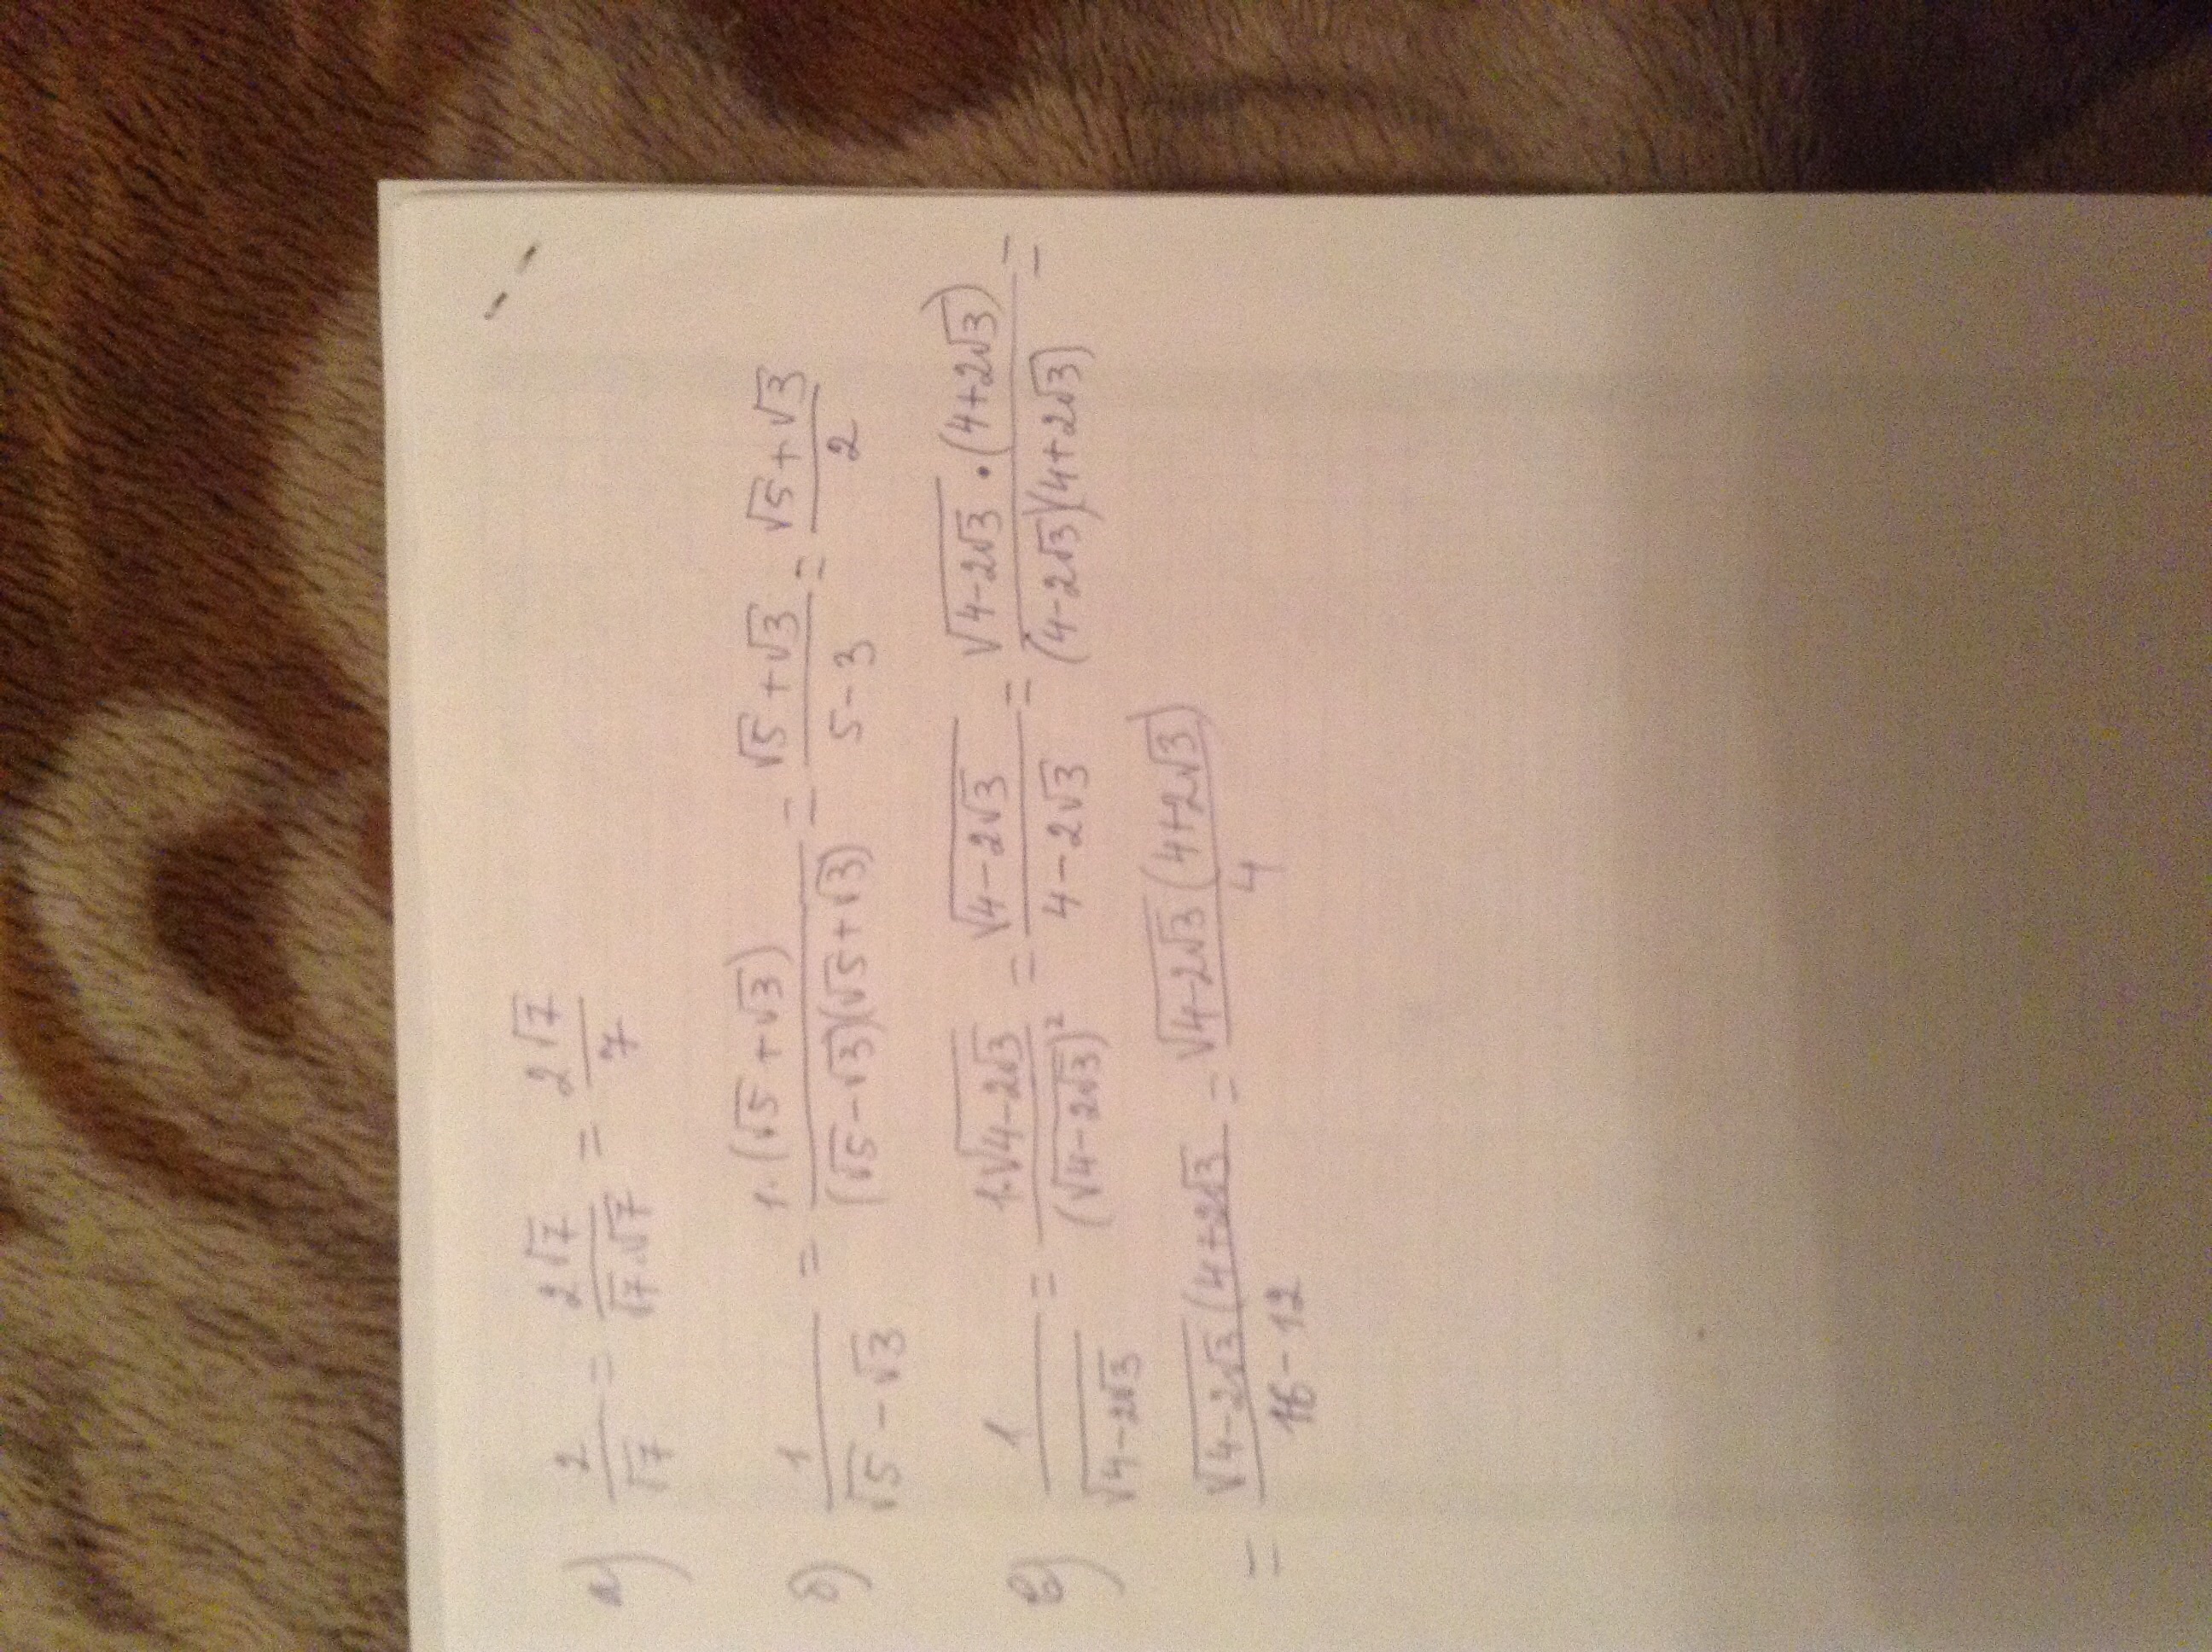 а) 2/√7 = 2√7/(√7·√7) = 2√7/7
б) 1/(√5-√3) = 1·(√5+√3)/((√5-√3)(√5+√3)) = (√5+√3)/(5-3) = (√5+√3)/2
в) 1/√(4-2√3) = 1·√(4-2√3)/(√(4-2√3))² = √(4-2√3)/(4-2√3) = √(4-2√3)·(4+2√3)/((4-2√3)(4+2√3)) =
= √(4-2√3)(4+2√3)/(16-12) = √(4-2√3)(4+2√3)/4